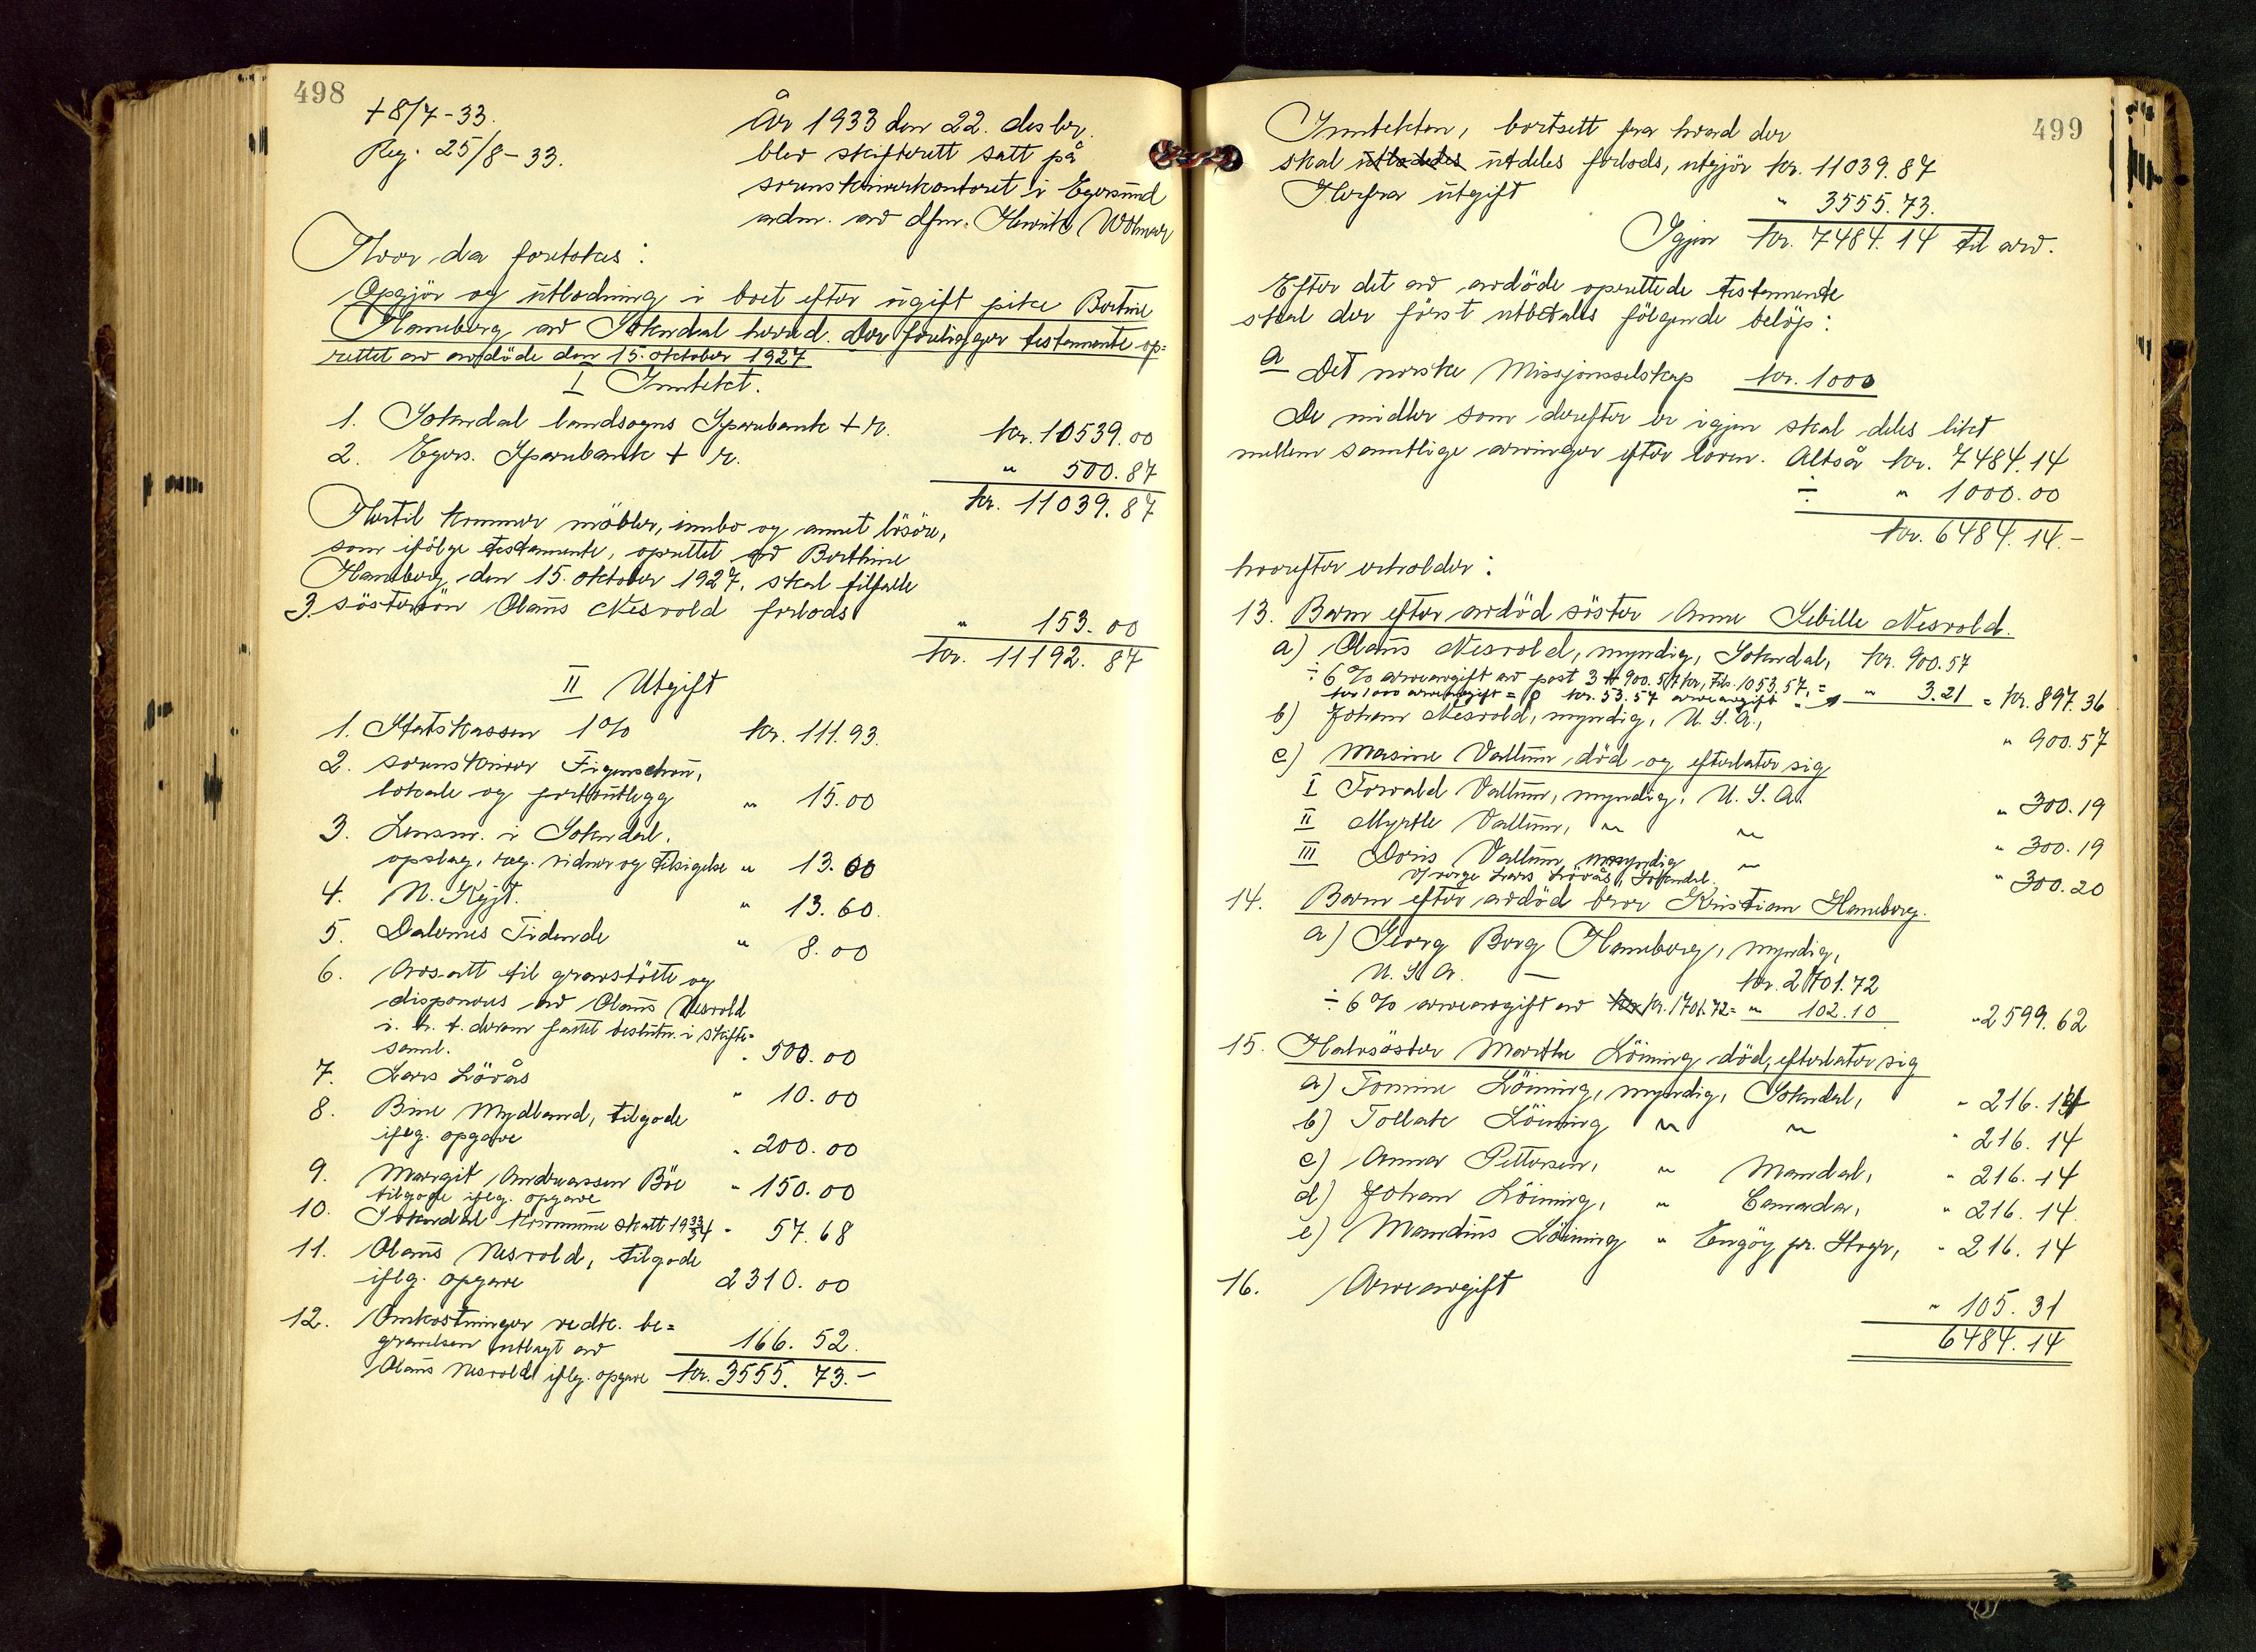 498
+ 8/7 - 33.
Reg. 25/8 - 33.
År 1933 den 22. desbr.
blev skifterett satt på
sorenskriverkontoret i Egersund
adm. av dfm.
Hvor da foretokes:
Opgjör og utlodning i boet efter ugift pike Bertine
Haneberg av Sokndal herred. Der foreligger testamente op=
rettet av avdöde den 15. oktober 1927
I Inntekt.
1. Sokndal landsogns Sparebank + r. kr. 10539.00
2. Egers. Sparebank + r. " 500.87
kr. 11039.87
Hertil kommer möbler, innbo og annet lösöre,
som ifölge testamente, oprettet av Berthine
Haneberg den 15. oktober 1927, skal tilfalle
3. söstersön Olaus Nesvold forlods " 153.00
kr. 11192.87
II Utgift
1. Statskassen 1% kr. 111.93.
2. sorenskriver Figenschou,
lokale og portoutlegg " 15.00
3. Lensm. i Sokndal,
opslag, reg. vidner og tilsigelse " 13.00
4. N. Kgjt. " 13.60.
5. Dalernes Tidende " 8.00
6. Avsatt til gravstötte og
disponeres av Olaus Nesvold
i. h. t. derom fattet beslutn. i skifte=
saml. " 500.00
7. Lars Lövås " 10.00
8. Bine Mydland, tilgode
iflg. opgave " 200.00
9. Margit Andreassen Böe " 150.00
tilgode iflg. opgave
10. Sokndal kommune skatt 1933/34 " 57.68
11. Olaus Nesvold, tilgode
iflg. opgave 2310.00
12. Omkostninger vedk. be=
gravelsen utlagt av 166.52.
Olaus Nesvold iflg. opgave kr. 3555.73.-
499
Inntekten, bortsett fra hvad der
skal utlodedes utdeles forlods, utgjör kr. 11039.87
Herfra utgift " 3555.73.
Igjen kr. 7484.14 til arv.
Efter det av avdöde oprettede testamente
skal der först utbetales fölgende belöp:
a Det norske Missjonsselskap kr. 1000
De midler som derefter er igjen skal deles likt
mellem samtlige arvinger efter loven. Altså kr. 7484.14
÷ " 1000.00
kr. 6484.14.-
hvorefter erholder:
13. Barn efter avdöd söster Anne Sebille Nesvold.
a) Olaus Nesvold, myndig, Sokndal, kr. 900.57
÷ 6% arveavgift av post 3 + 900.57 kr, tils. 1053.57, =
for 1000 arveavgift = 0 kr. 53.57 arveavgift = " 3.21 = kr. 897.36
b) Johan Nesvold, myndig, U.S.A., " 900.57
c) Masine Vallum, död og efterlater sig
I Torvald Vallum, myndig, U.S.A. " 300.19
II Myrtle Vallum, " " " 300.19
III Doris Vallum umyndig " " 300.20
v/ verge Lars Lövås, Sokndal.
14. Barn efter avdöd bror Kristian Haneberg.
a) Georg Berg Haneberg, myndig,
U.S.A. — kr. 2701.72
÷ 6% arveavgift av kr. 1701.72 = " 102.10 " 2599.62
15. Halvsöster Marthe Löining död, efterlater sig
a) Tomine Löining, myndig, Sokndal, " 216.14
b) Tollak Löining " " " 216.14
c) Anna Pettersen, " Mandal, " 216.14
d) Johan Löining, " Canada, " 216.14.
e) Mandius Löining " Engöy pr. Stvgr, " 216.14
16. Arveavgift " 105.31
6484.14